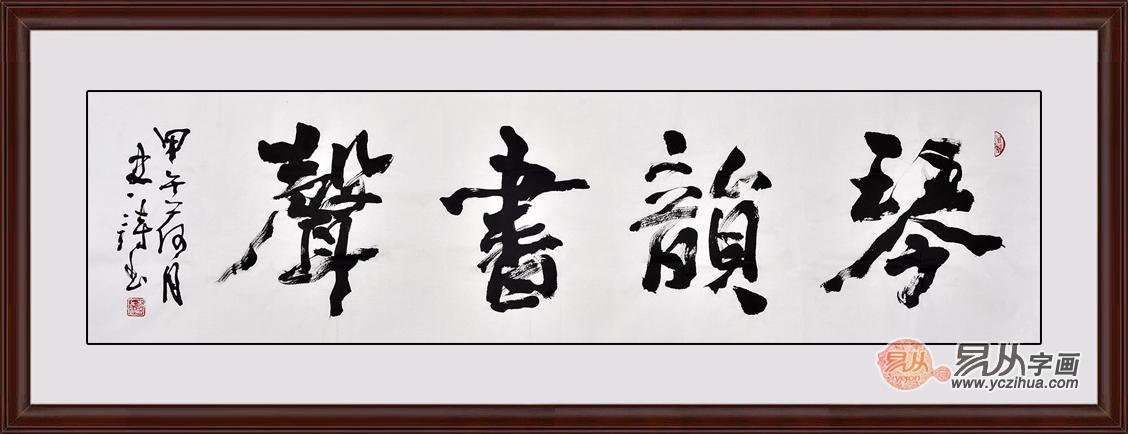 琴韻書聲
甲午荷月
易从字画
www.yczihua.com
易从
yicong